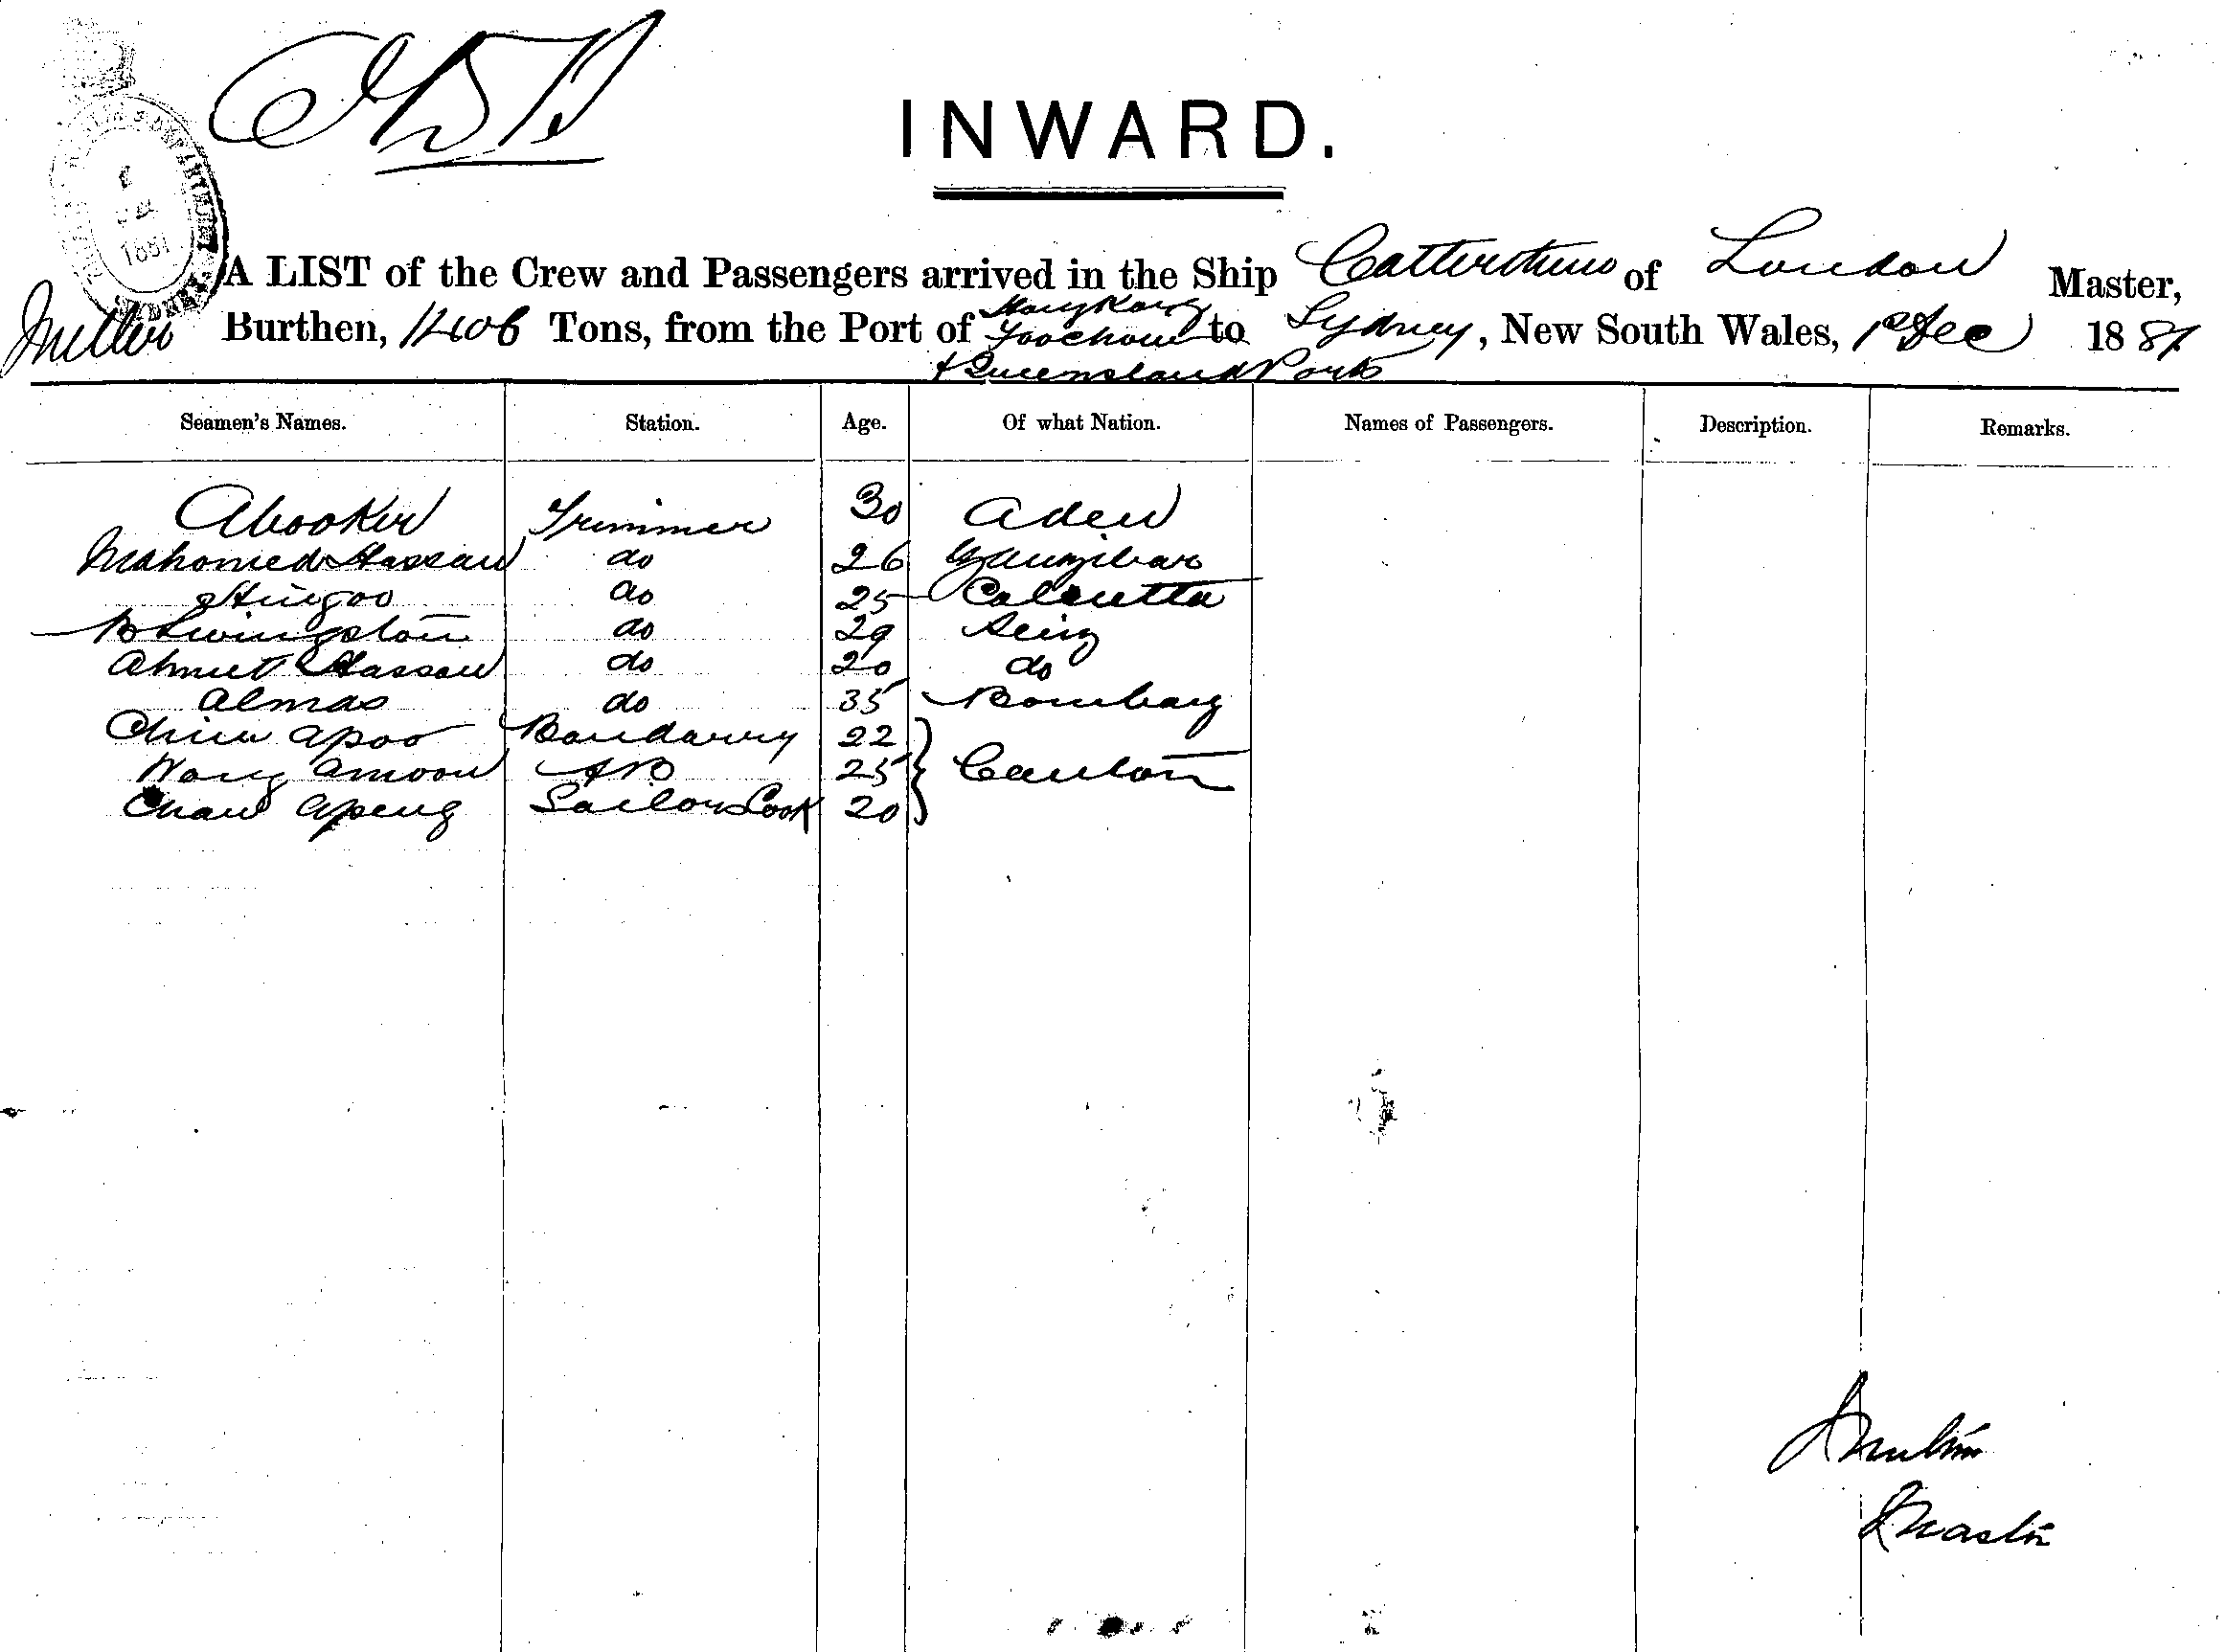 INWARD.
A LIST of the Crew and Passengers arrived in the Ship Catterthun of London Master,
Miller Burthen, 1406 Tons, from the Port of Hong Kong Foochow to Sydney, New South Wales, 1st Dec 1881
& Queensland Ports
Seamen's Names. Station. Age. Of what Nation. Names of Passengers. Description. Remarks.
Abooker Trimmer 30 Aden
Mahomed Hassan do 26 Zanzibar
Hingoo do 25 Calcutta
B Livingston do 29
Ahmet Hassan do 20 do
Almas do 35 Bombay
Chin Apoo Bandarry 22
Wong Amoon AB 25 Canton
Chan Apeng Sailors Cook 20
Miller
Master